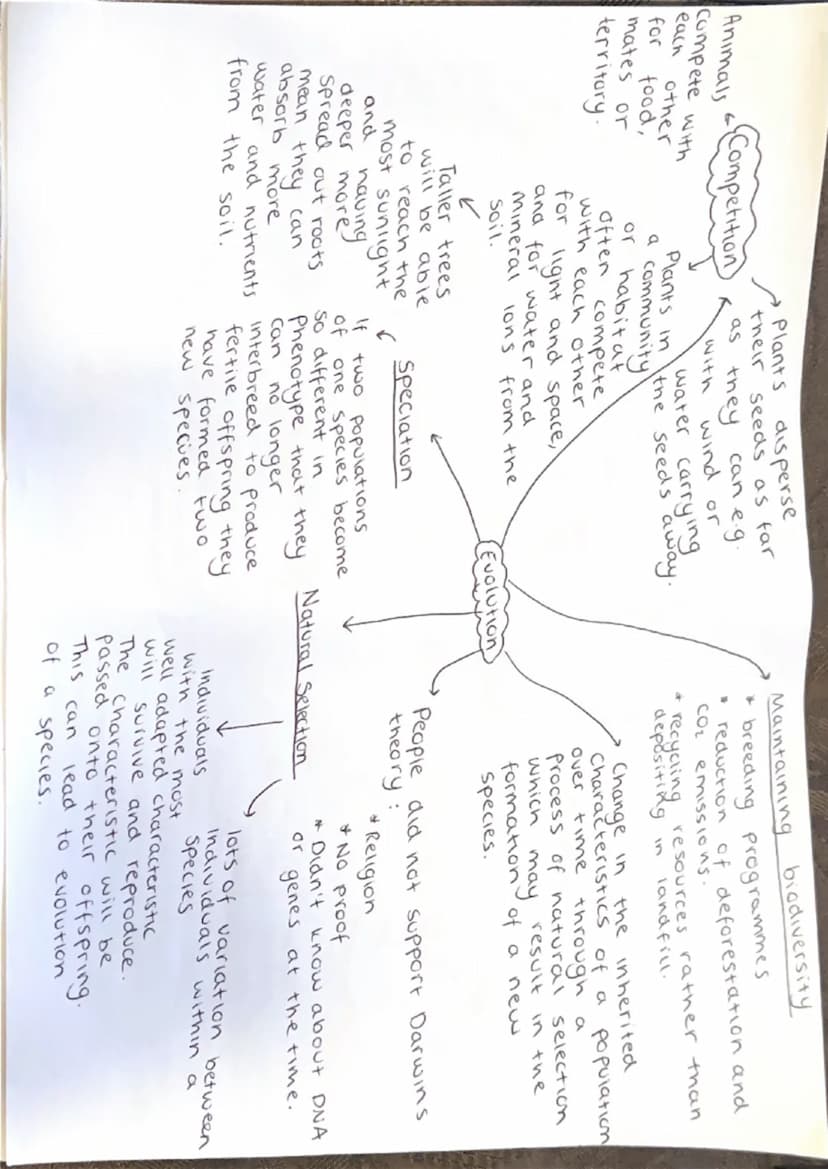 Competition
Animals
compete with
each other
for food,
mates or
territory.
Plants disperse
their seeds as far
as they can e.g.
with wind or
water carrying
the seeds away.
Plants in
a community
or habitat
often compete
with each other
for light and space,
and for water and
mineral ions from the
soil.
Taller trees
will be able
to reach the
most sunlight
and having
deeper more
spread out roots
mean they can
absorb more
water and nutrients
from the soil.
Speciation
If two populations
of one species become
so different in
Phenotype that they
can no longer
interbreed to produce
fertile offspring they
have formed two
new species.
Evolution
Maintaining biodiversity
* breeding programmes
* reduction of deforestation and
CO₂ emissions.
* recycling resources rather than
depositing in landfill.
Change in the inherited
Characteristics of a population
over time through a
Process of natural selection
which may result in the
formation of a new
species.
People did not support Darwins
theory:
* Religion
* No proof
* Didn't know about DNA
or genes at the time.
Natural Selection
lots of variation between
individuals within a
species
individuals
with the most
well adapted characteristic
will survive and reproduce.
The characteristic will be
passed onto their offspring.
This can lead to evolution
of a species.